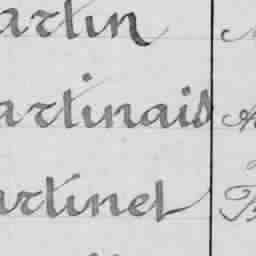 artin
artinais
artinet